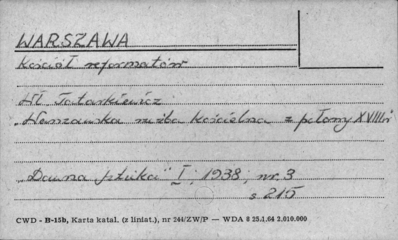 WARSZAWA
Kościół reformatów
Wł. Tatarkiewicz
„Warszawska rzeźba kościelna z połowy XVIII w
„Dawna sztuka" I, 1938, nr. 3
s 215
CWD - B-15b, Karta katal. (z liniat.), nr 244/ZW/P — WDA 8 25.1.64 2.010.000